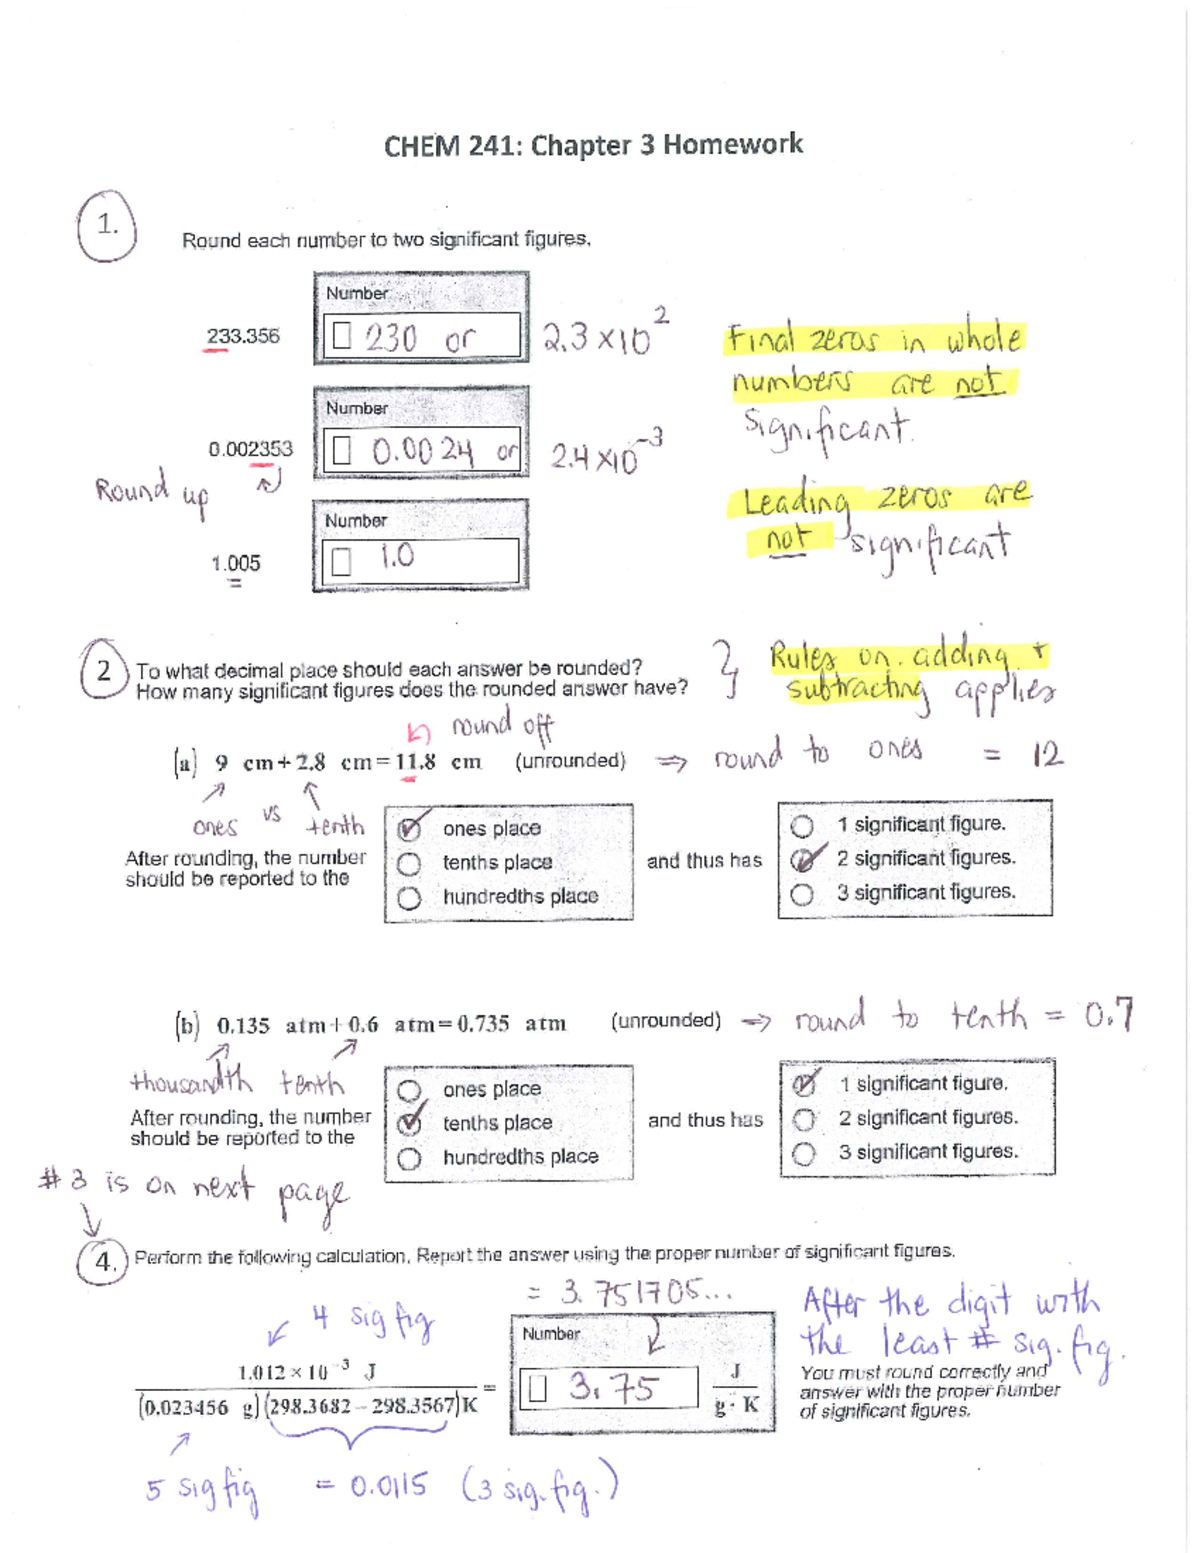 CHEM 241: Chapter 3 Homework
1.
Round each number to two significant figures.
Number
233.356 230 or 2.3 ×10²
Final zeros in whole
numbers are not
significant.
Number
0.002353 0.0024 or 2.4 ×10⁻³
Round up
Leading zeros are
not significant
Number
1.005 1.0
2 To what decimal place should each answer be rounded?
How many significant figures does the rounded answer have?
Rules on adding +
subtracting applies
round off
(a) 9 cm + 2.8 cm = 11.8 cm (unrounded) ⇒ round to ones = 12
ones vs tenth
After rounding, the number
should be reported to the
ones place
tenths place
hundredths place
and thus has
1 significant figure.
2 significant figures.
3 significant figures.
(b) 0.135 atm + 0.6 atm = 0.735 atm (unrounded) ⇒ round to tenth = 0.7
thousandth tenth
After rounding, the number
should be reported to the
ones place
tenths place
hundredths place
and thus has
1 significant figure.
2 significant figures.
3 significant figures.
# 3 is on next page
4. Perform the following calculation. Report the answer using the proper number of significant figures.
= 3.751705...
4 sig fig
After the digit with
the least # sig. fig.
Number
1.012 × 10⁻³ J
(0.023456 g)(298.3682 − 298.3567)K
=
3.75
J
g · K
You must round correctly and
answer with the proper number
of significant figures.
5 sig fig = 0.0115 (3 sig. fig.)